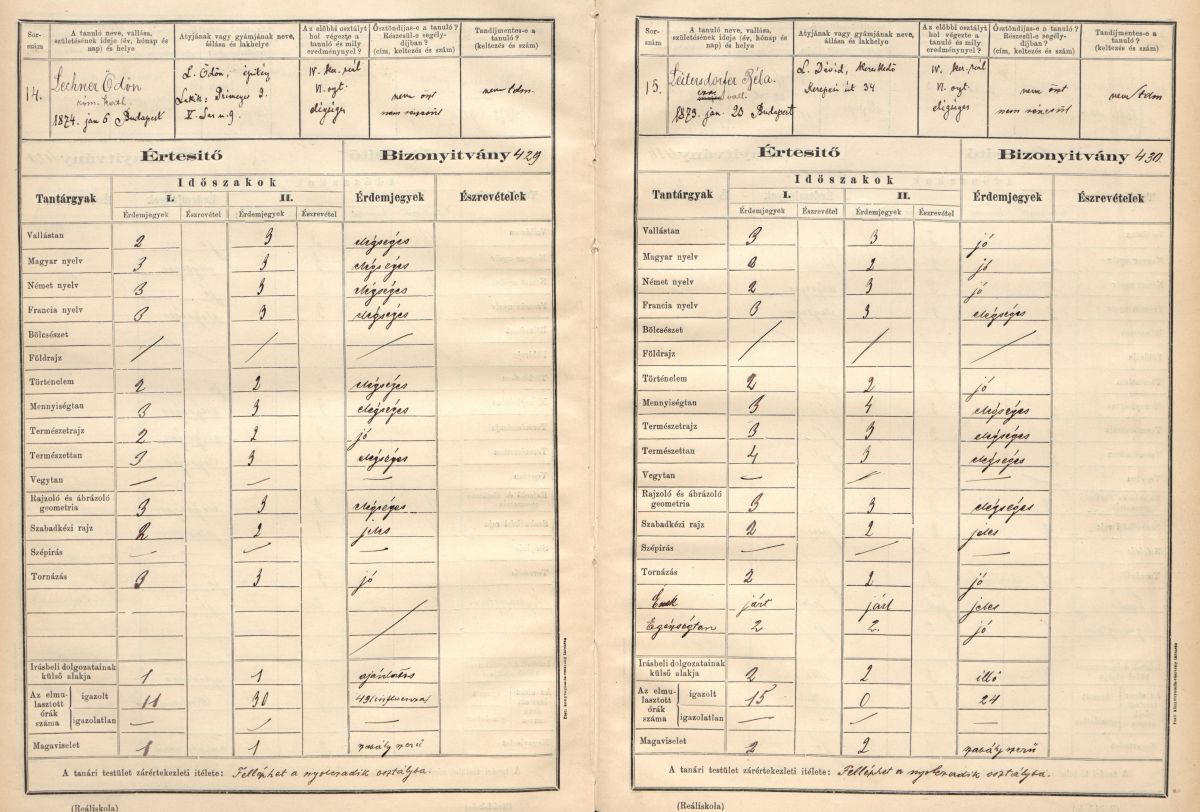 Sor-
szám
A tanuló neve, vallása,
születésének ideje (év, hónap és
nap) és helye
Atyjának vagy gyámjának neve,
állása és lakhelye
Az előbbi osztályt
hol végezte a
tanuló és mily
eredménynyel?
Ösztöndíjas-e a tanuló?
Részesül-e segély-
díjban?
(cím, keltezés és szám)
Tandíjmentes-e a
tanuló?
(keltezés és szám)
14.
Lechner Ödön
róm. kath.
1874. jan 5 Budapest
L. Ödön, építész
Lakik:
IV. ker. reál
VI. oszt.
elégséges
nem öszt
nem részesül
nem tdm.
Értesitő
Bizonyitvány 429
Tantárgyak
Időszakok
I. II.
Érdemjegyek Észrevétel Érdemjegyek Észrevétel
Érdemjegyek
Észrevételek
Vallástan 2 3 elégséges
Magyar nyelv 3 3 elégséges
Német nyelv 3 3 elégséges
Francia nyelv 3 3 elégséges
Bölcsészet
Földrajz
Történelem 2 2 elégséges
Mennyiségtan 3 3 elégséges
Természetrajz 2 2 jó
Természettan 3 3 elégséges
Vegytan — — —
Rajzoló és ábrázoló
geometria 3 3 elégséges
Szabadkézi rajz 2 2 jeles
Szépirás — — —
Tornázás 3 3 jó
Irásbeli dolgozatainak
külső alakja 1 1
Az elmu-
lasztott
órák
száma
igazolt 11 30
igazolatlan — — —
Magaviselet 1 1 szabályszerű
A tanári testület zárértekezleti itélete: Felléphet a nyolczadik osztályba.
(Reáliskola)
Sor-
szám
A tanuló neve, vallása,
születésének ideje (év, hónap és
nap) és helye
Atyjának vagy gyámjának neve,
állása és lakhelye
Az előbbi osztályt
hol végezte a
tanuló és mily
eredménynyel?
Ösztöndíjas-e a tanuló?
Részesül-e segély-
díjban?
(cím, keltezés és szám)
Tandíjmentes-e a
tanuló?
(keltezés és szám)
15.
Leitersdorfer Béla.
izr. vall.
1873. jan. 20 Budapest
L. Dávid, kereskedő
Kerepesi út 34
IV. ker. reál
VI. oszt.
elégséges
nem öszt
nem részesül
nem tdm
Értesitő
Bizonyitvány 430
Tantárgyak
Időszakok
I. II.
Érdemjegyek Észrevétel Érdemjegyek Észrevétel
Érdemjegyek
Észrevételek
Vallástan 3 3 jó
Magyar nyelv 3 2 jó
Német nyelv 2 3 jó
Francia nyelv 3 3 elégséges
Bölcsészet
Földrajz
Történelem 2 2 jó
Mennyiségtan 3 4 elégséges
Természetrajz 3 3 elégséges
Természettan 4 3 elégséges
Vegytan — — —
Rajzoló és ábrázoló
geometria 3 3 elégséges
Szabadkézi rajz 2 2 jeles
Szépirás — — —
Tornázás 2 2 jó
Ének járt járt jeles
Egészségtan 2 2. jó
Irásbeli dolgozatainak
külső alakja 2 2 illő
Az elmu-
lasztott
órák
száma
igazolt 15 0 24
igazolatlan — — —
Magaviselet 2 2 szabályszerű
A tanári testület zárértekezleti itélete: Felléphet a nyolczadik osztályba.
(Reáliskola)